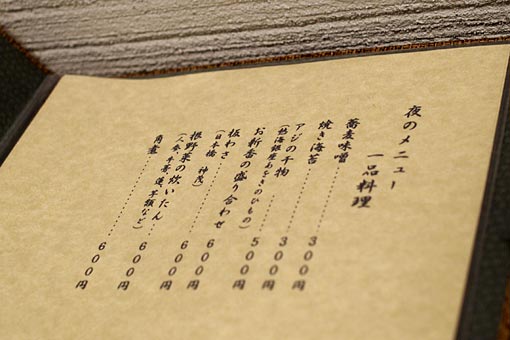 夜のメニュー
一品料理
蕎麦味噌 300円
焼き海苔 300円
アジの干物 500円
(熱海銀座あをきのひもの)
お新香の盛り合わせ 600円
板わさ 600円
(日本橋 神茂)
根野菜の炊いたん 600円
(人参、牛蒡、蓮、芋類など)
角煮 600円